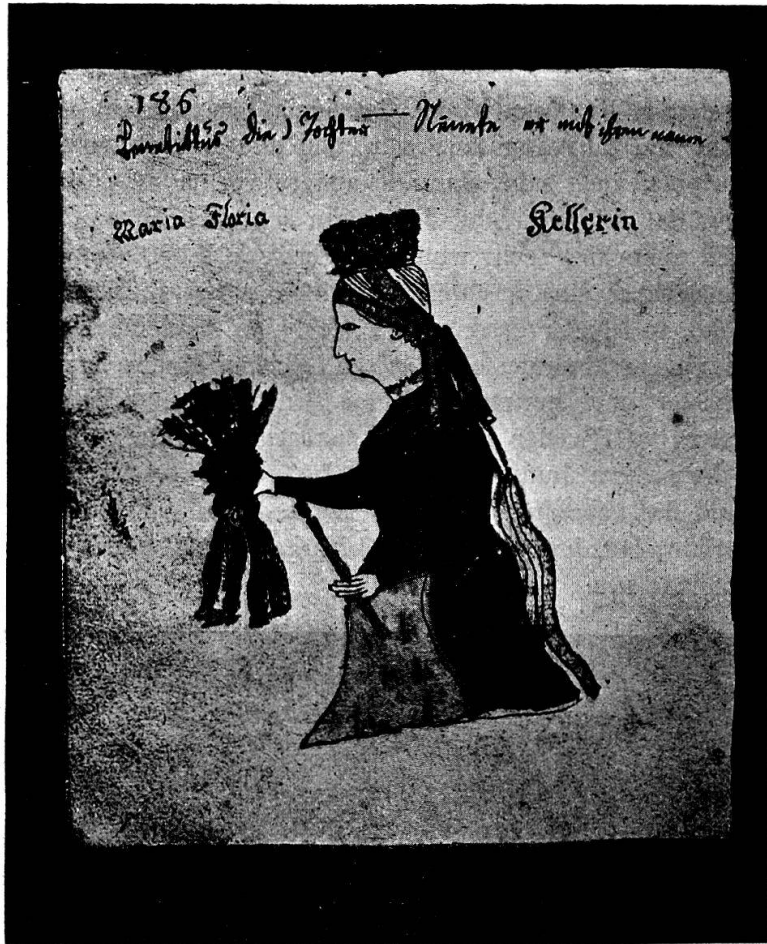 186
Benediktus die) Tochter — Nennete er mit ihren name
Maria Floria Kellerin